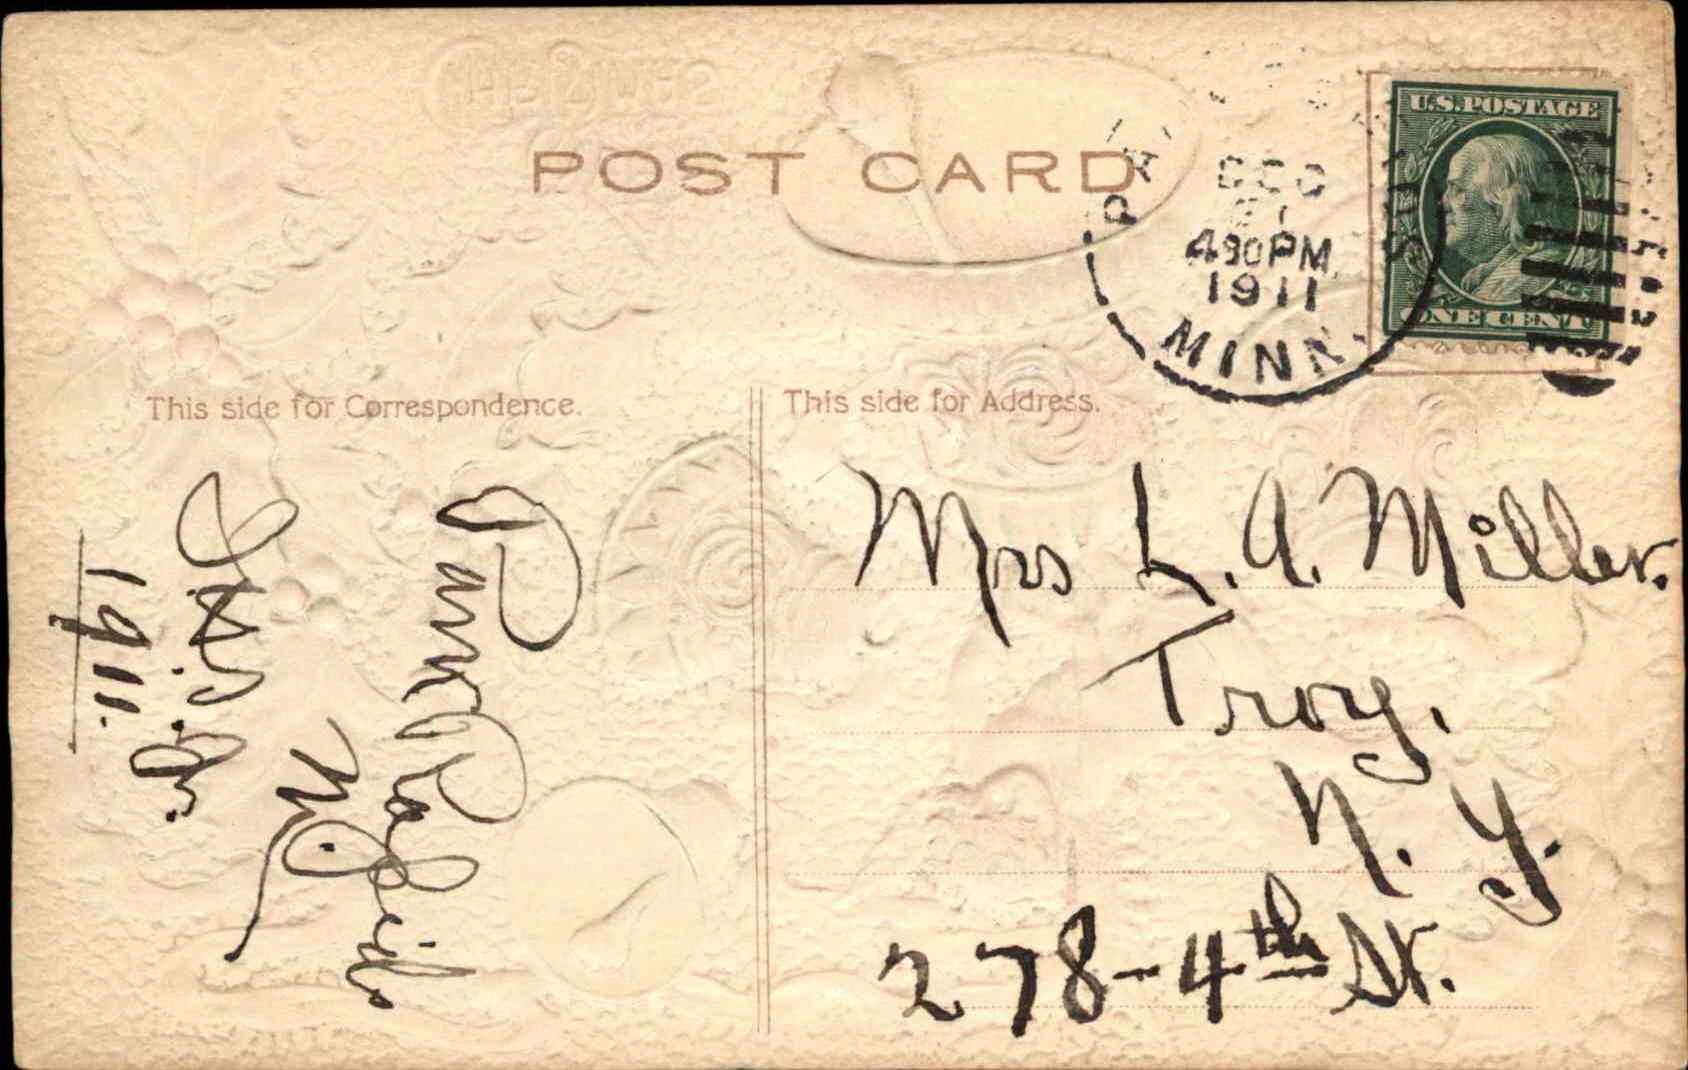 POST CARD
PARK
RAPIDS
DEC
4 30 PM
1911
MINN.
U.S. POSTAGE
ONE CENT
This side for Correspondence.
This side for Address.
Park Rapids
Minn.
1911.
Mrs L. A. Miller.
Troy.
N. Y.
278-4th St.